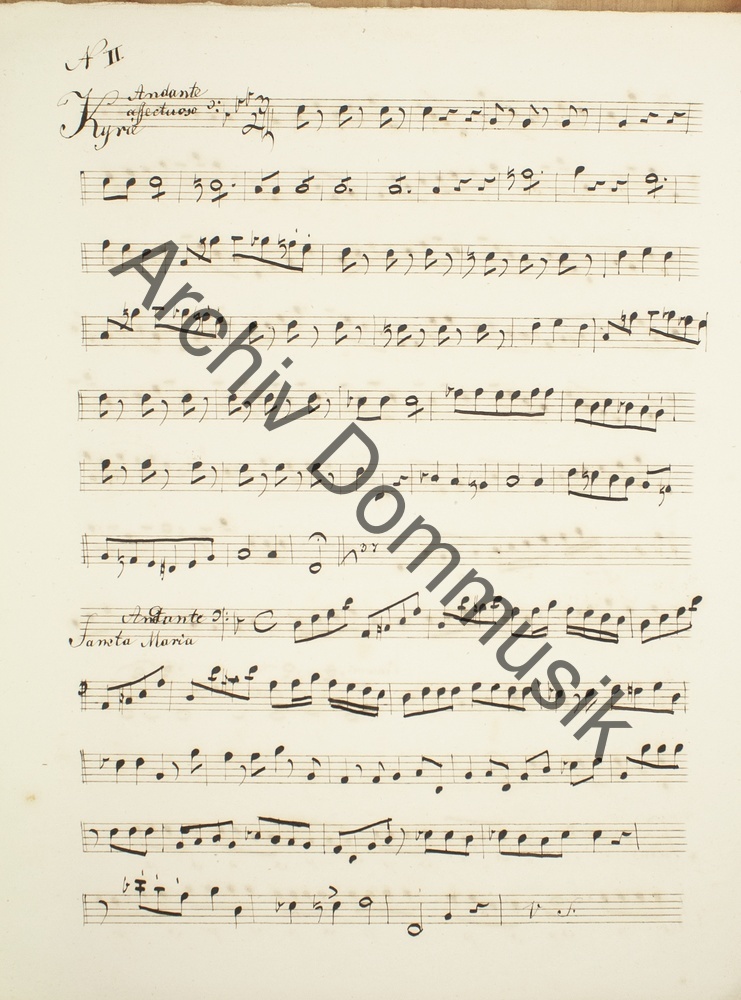 N II.
Andante
affectuoso
Kyrie
Andante
Sancta Maria
V. S.
Archiv Dommusik